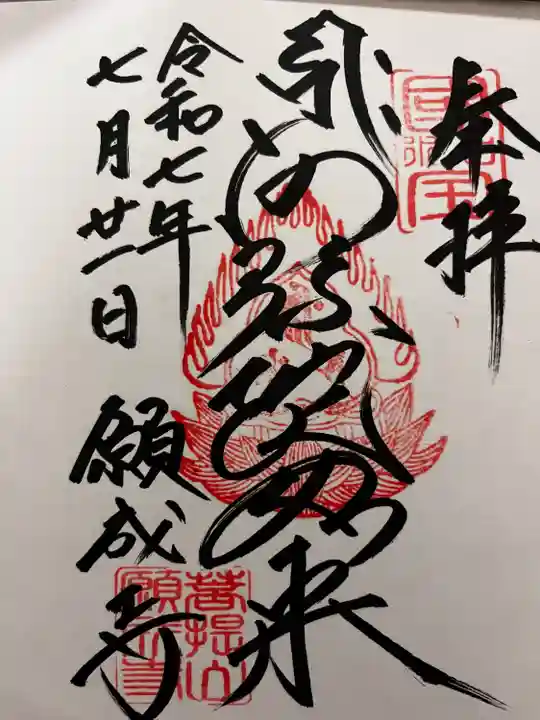 奉拝
阿弥陀如来
令和七年
七月廿一日
願成寺
菩提山
願成寺